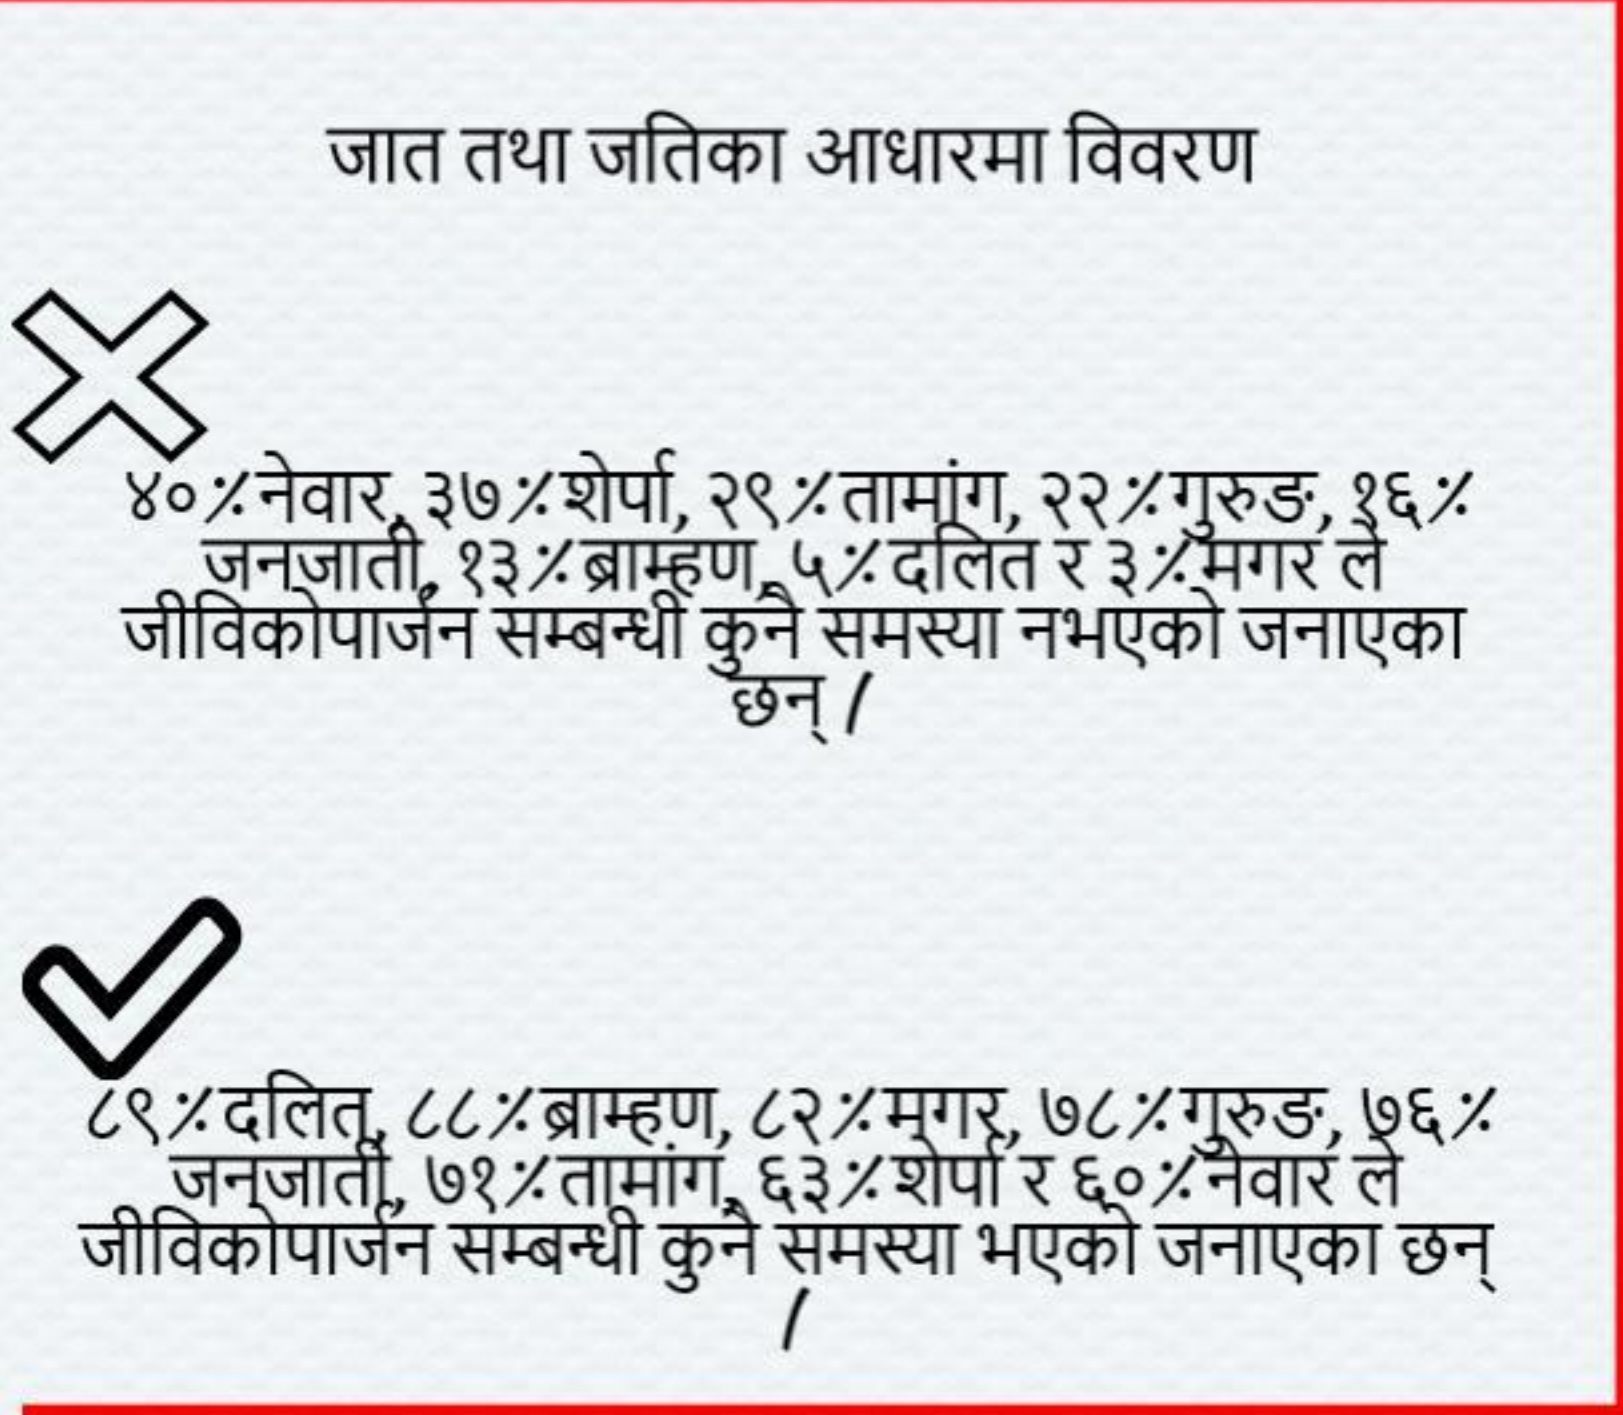 जात तथा जतिका आधारमा विवरण
४०٪नेवार, ३७٪शेर्पा, २९٪तामांग, २२٪गुरुङ, १६٪
जनजाती, १३٪ब्राम्हण, ५٪दलित र ३٪मगर ले
जीविकोपार्जन सम्बन्धी कुनै समस्या नभएको जनाएका
छन् /
८९٪दलित, ८८٪ब्राम्हण, ८२٪मगर, ७८٪गुरुङ, ७६٪
जनजाती, ७१٪तामांग, ६३٪शेर्पा र ६०٪नेवार ले
जीविकोपार्जन सम्बन्धी कुनै समस्या भएको जनाएका छन्
/